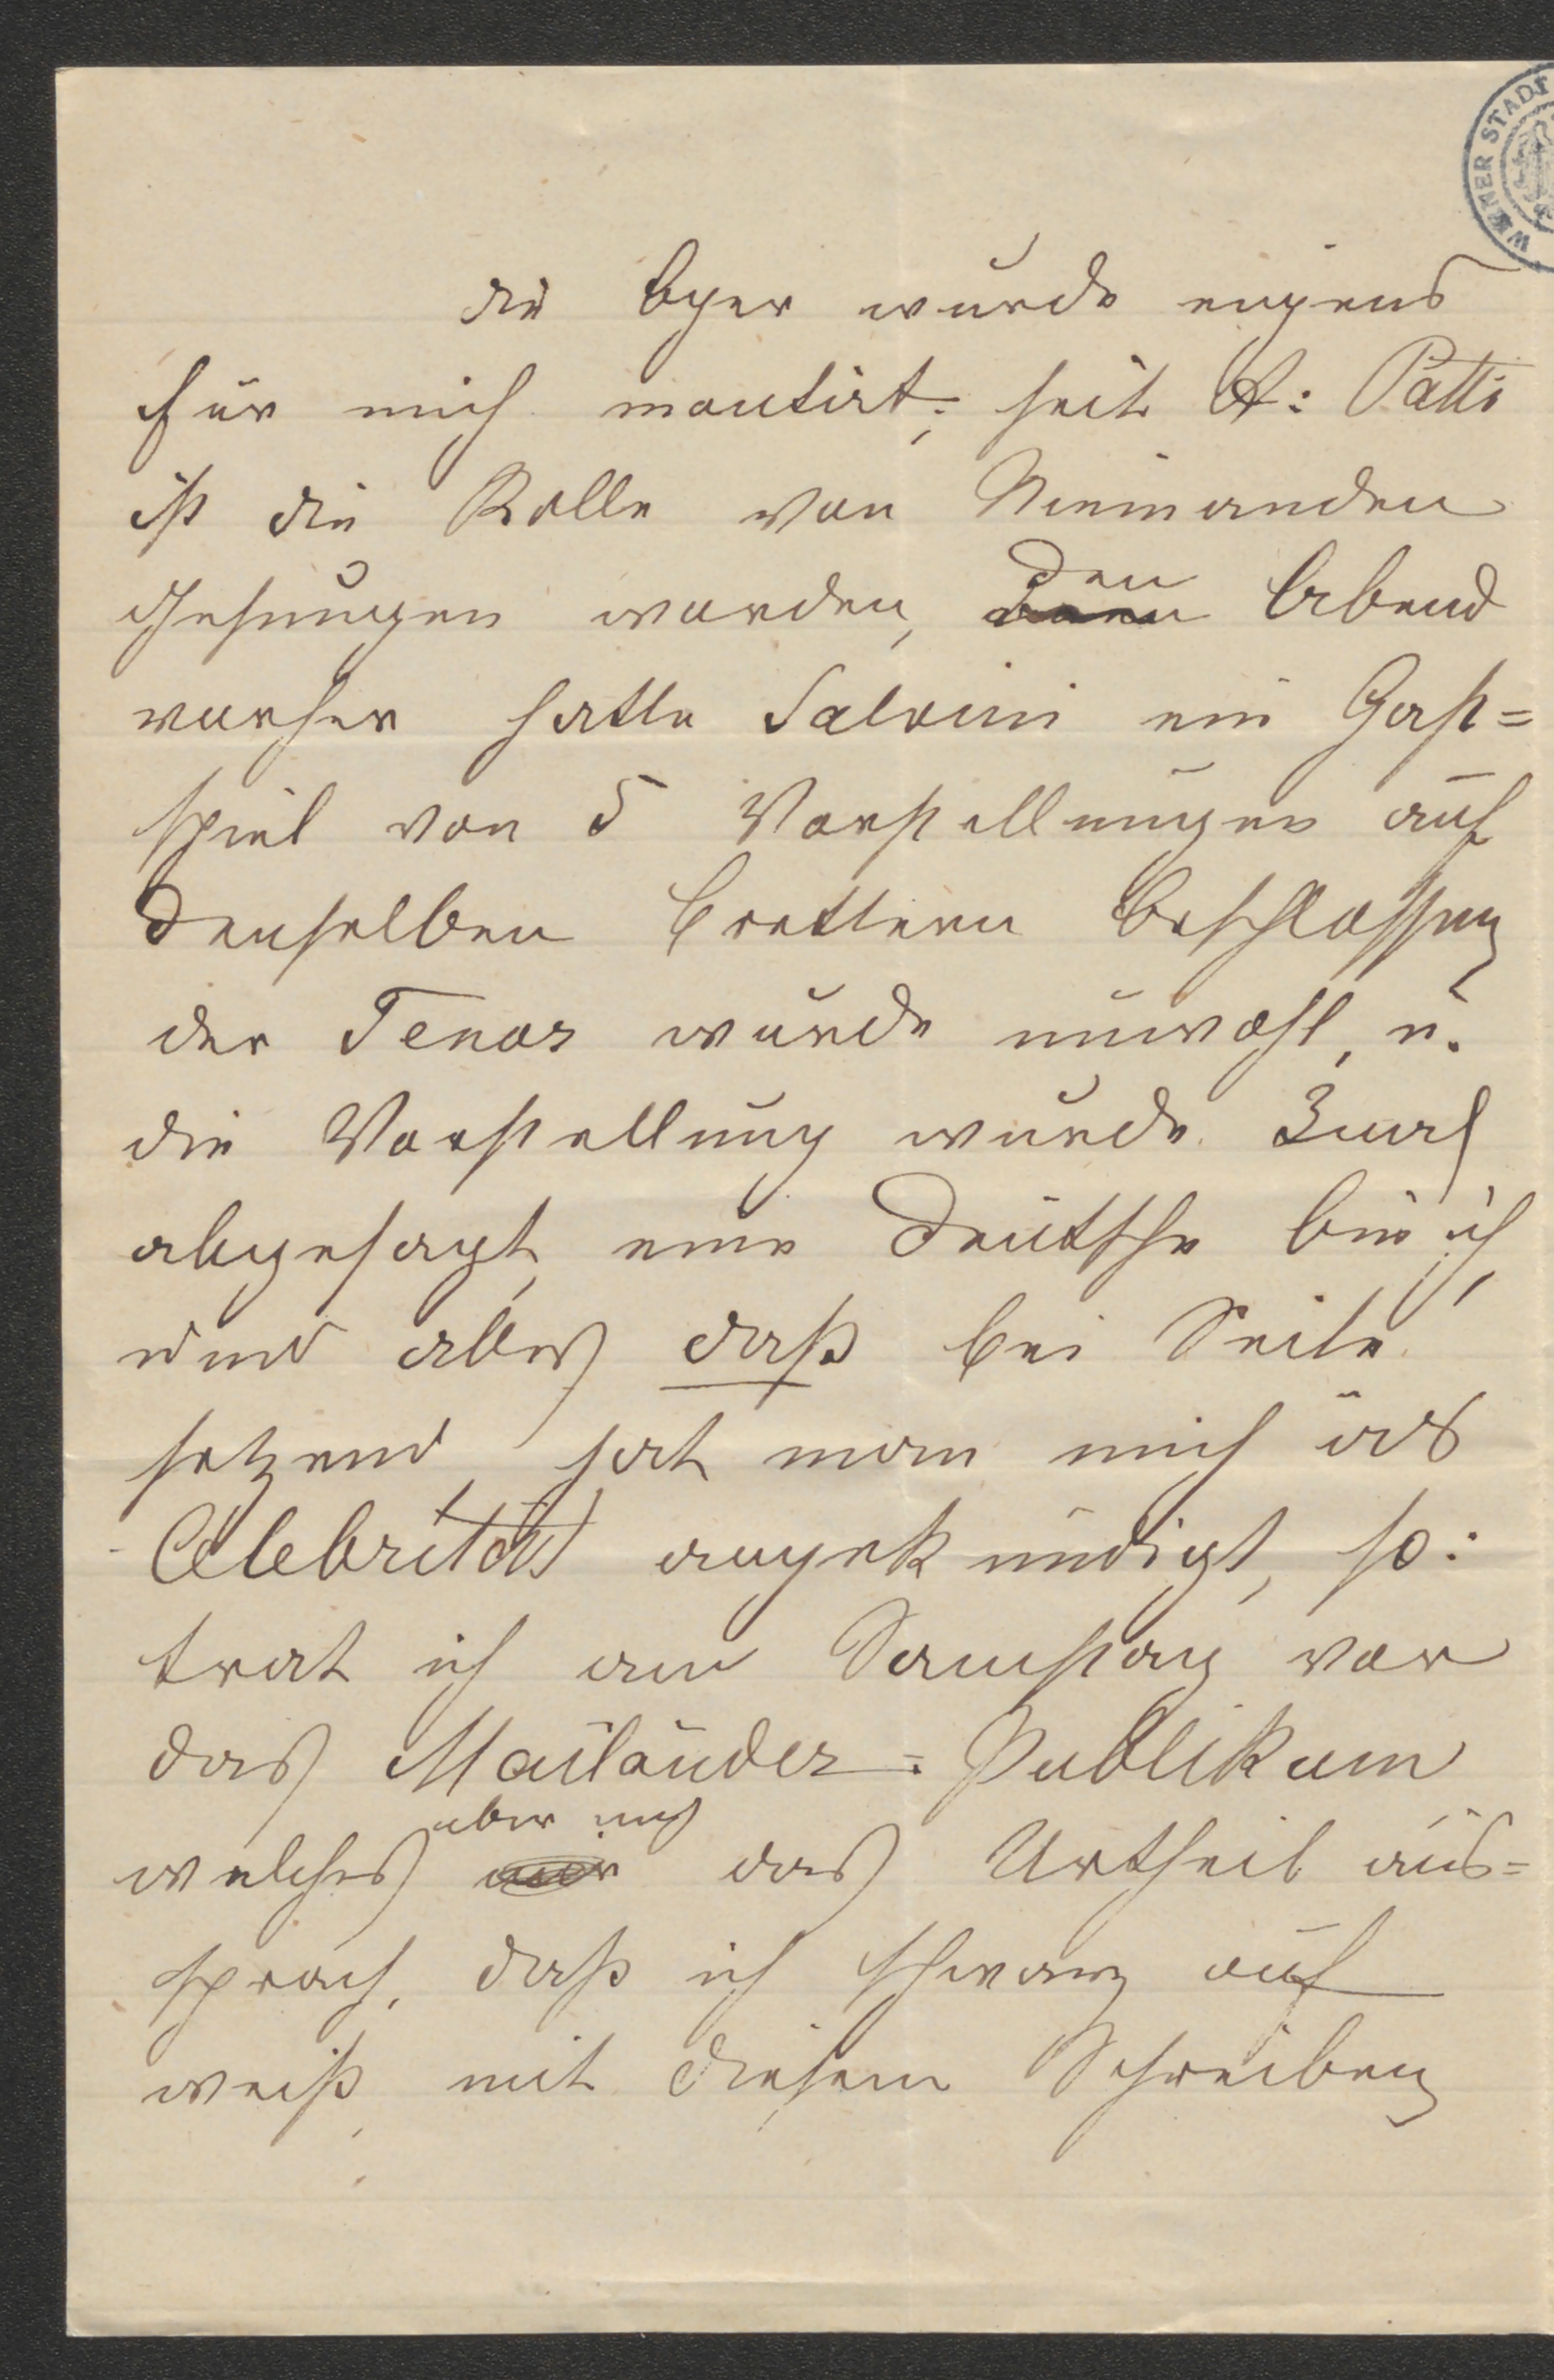 WIENER STADT
die Oper wurde eigens
für mich montirt; seit A: Patti
ist die Rolle von Niemanden
gesungen worden, den Abend
vorher hatte Salvini ein Gast=
spiel von 5 Vorstellungen auf
denselben Brettern beschlossen
der Tenor wurde unwohl, u.
die Vorstellung wurde 3mal
abgesagt, eine Deutsche bin ich,
und alles daß bei Seite
setzend, hat man mich als
Celebrität angekündigt, so:
trat ich am Samstag vor
das Mailänder=Publikum
welches über mich das Urtheil aus=
sprach, daß ich schwarz auf
weiß, mit diesem Schreiben